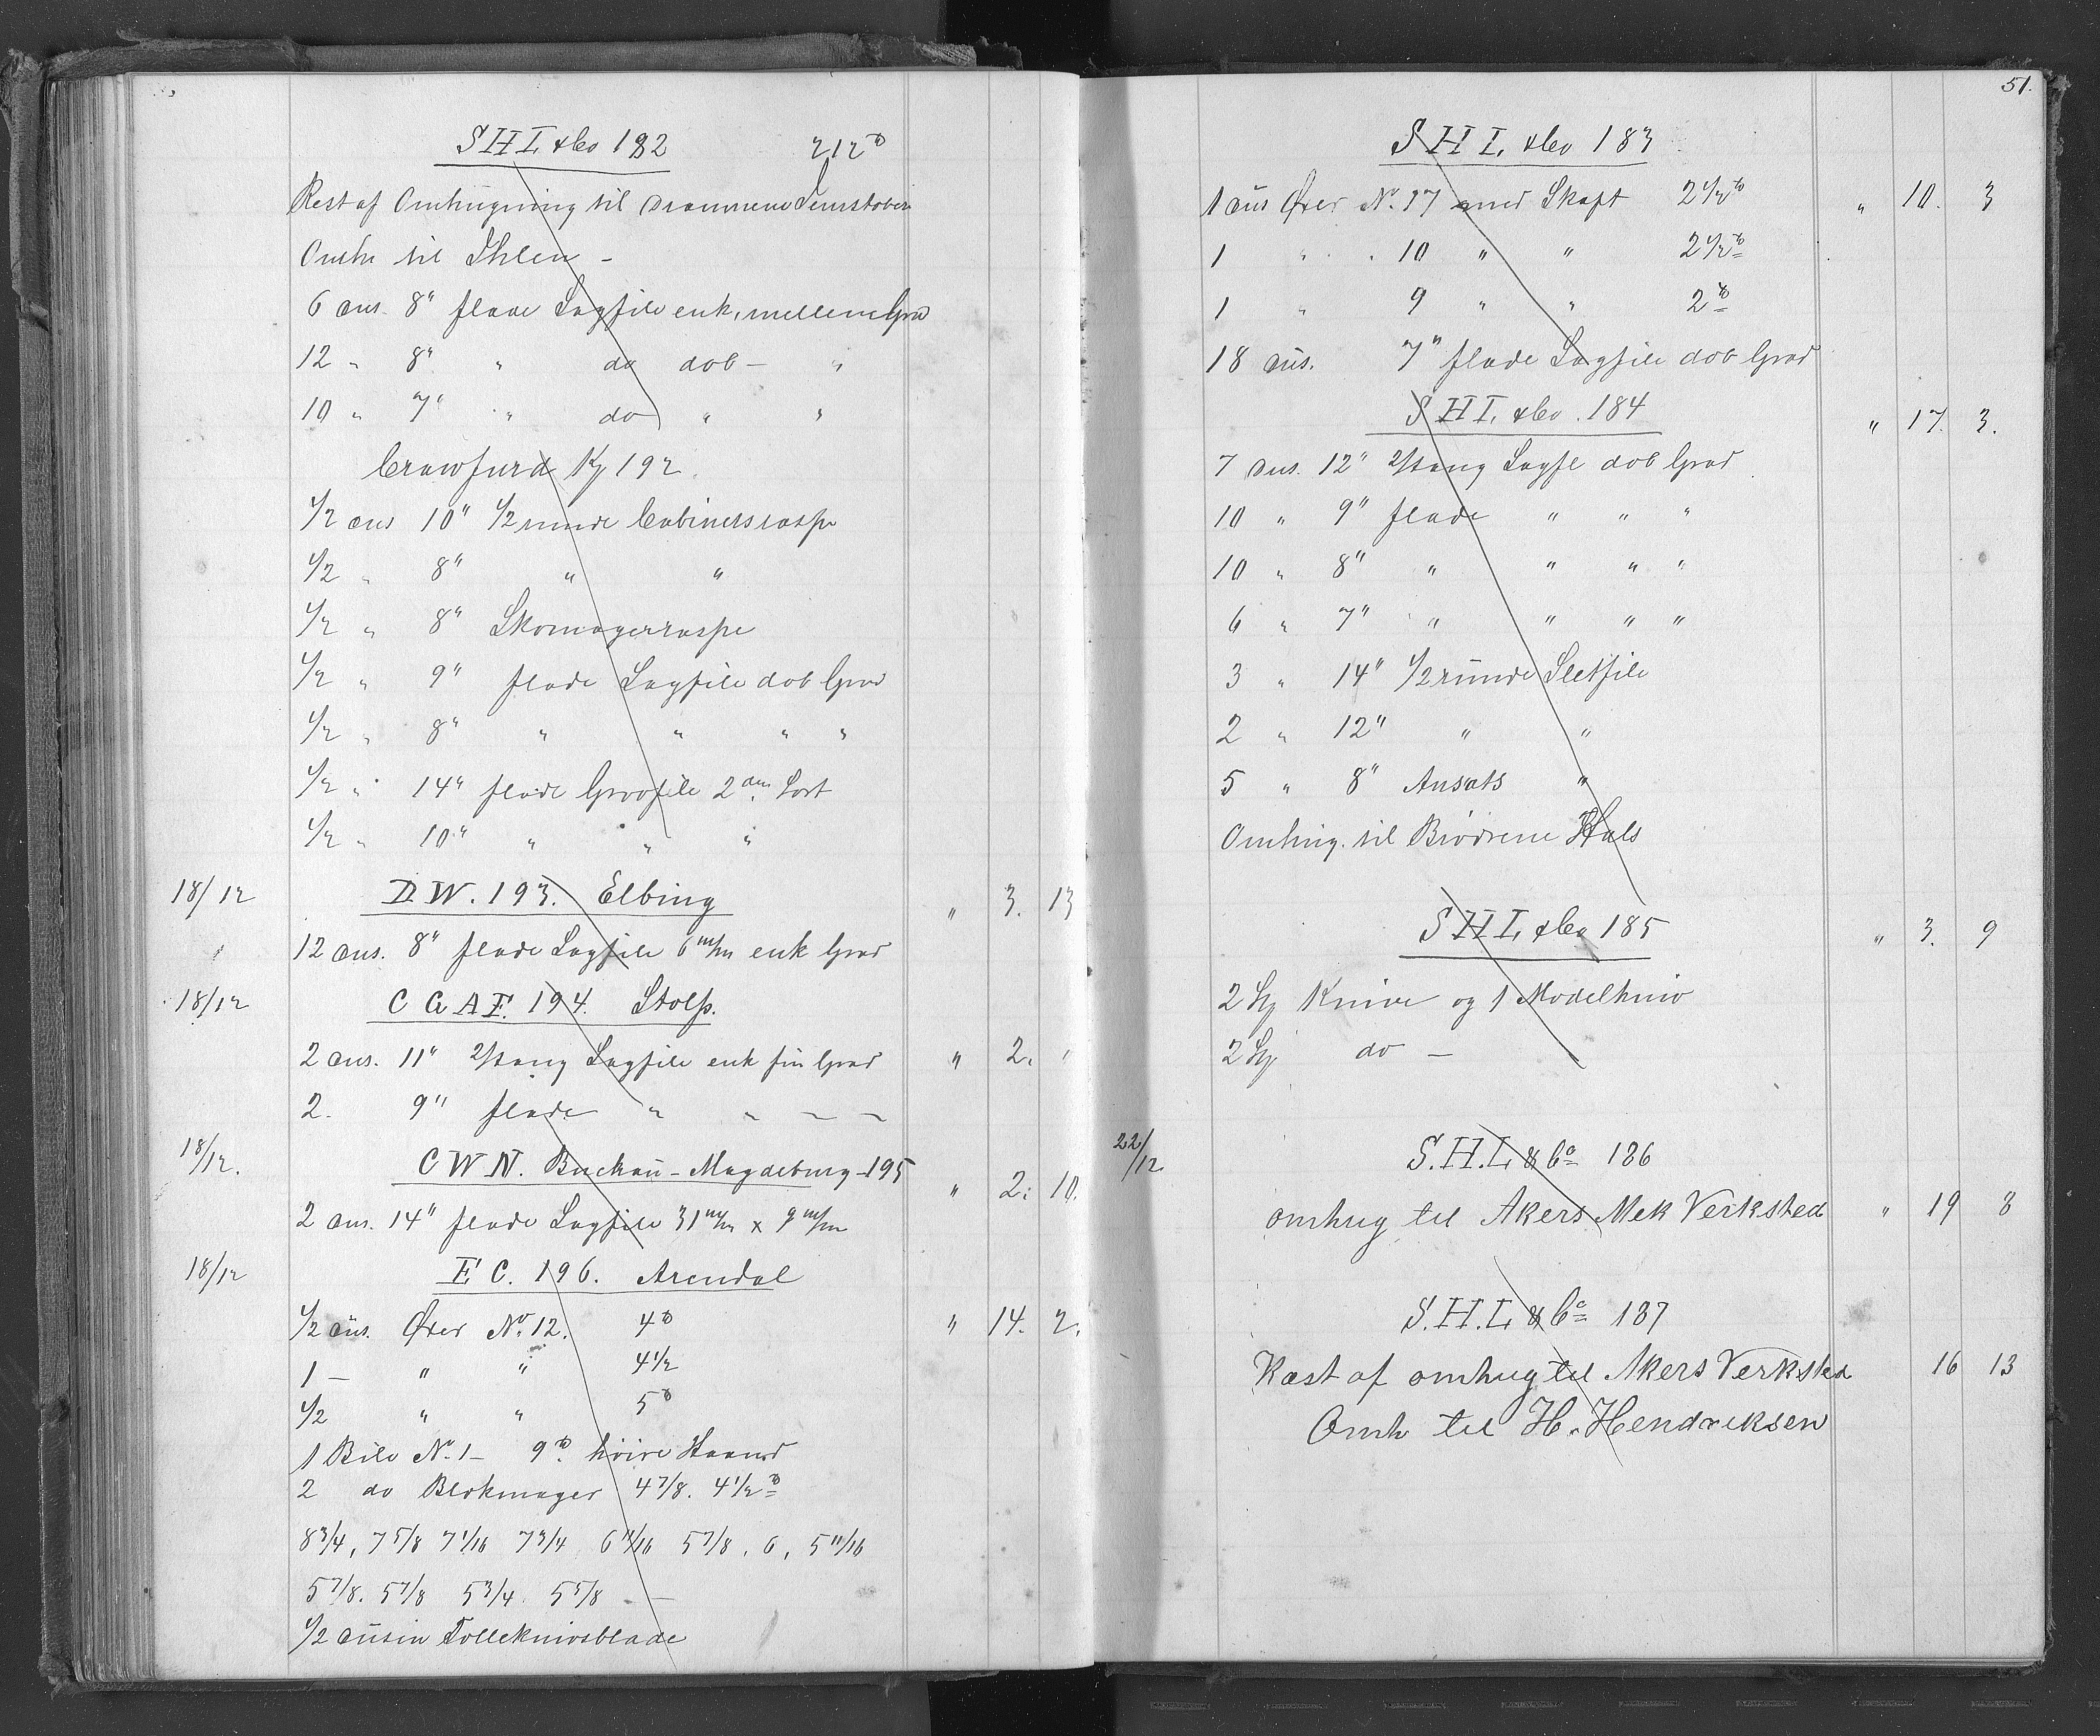 S H L & Co 182 212 ℔
Rest af Omhugning til Drammens Jernstøberi
Omhu til Ihlen -
6 dus. 8" flade Sagfile enk. mellem Grad
12 " 8" " do dob - "
10 " 7" " do " "
Crawfurd Kj 192.
1/2 dus 10" 1/2 runde Cabinetsraspe
1/2 " 8" " "
1/2 " 8" Skomagerraspe
1/2 " 9" flade Sagfile dob Grad
1/2 " 8" " " " "
1/2 " 14" flade Grovfile 2den Sort
1/2 " 10" " " "
18/12 D. W. 193. Elbing " 3. 13
12 dus. 8" flade Sagfile 6 m/m enk Grad
18/12 C G A F. 194. Stolp.
2 dus. 11" 2/stang Sagfile enk fin Grad " 2. "
2. 9" flade " " - -
18/12. C W N. Buckau - Magdeburg - 195 " 2. 10.
2 dus. 14" flade Sagfile 31 m/m x 9 m/m
18/12 E C. 196. Arendal
1/2 dus. Øxer No. 12. 4 ℔ " 14. 2.
1 - " " 4 1/2
1/2 " " 5 ℔
1 Bile No. 1 - 9 ℔. høire Haand
2 do Blokmager 4 7/8. 4 1/2 ℔
8 3/4, 7 5/8 7 1/16 7 3/4 6 11/16 5 7/8, 6, 5 11/16
5 7/8. 5 7/8 5 3/4. 5 5/8 - -
1/2 dusin Tolleknivsblade
51.
S H L. & Co 183
1 dus Øxer No. 17 med Skaft 2 1/2 ℔ " 10. 3
1 " " 10 " " 2 1/2 ℔
1 " 9 " " 2 ℔
18 dus. 7" flade Sagfile dob Grad
S H L. & Co. 184 " 17. 3.
7 dus. 12" 2/stang Sagfl dob Grad
10 " 9" flade " " "
10 " 8" " " " "
6 " 7" " " " "
3 " 14" 1/2 runde Sletfile
2 " 12" " "
5 " 8" Ansats "
Omhug. til Brødrene Hals
S H L. & Co 185 " 3. 9
2 Sp Knive og 1 Modelkniv
2 Sp do -
22/12 S. H. L. & Co 186
omhug til Akers Mek Verksted " 19 8
S. H. L. & Co 187
Ræst af omhug til Akers Verksted 16 13
Omh til H. Hendriksen